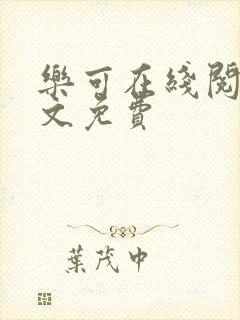 樂可在綫閱
文免費
葉茂中